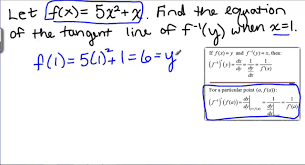 Let f(x) = 5x² + x. Find the equation
of the tangent line of f⁻¹(y) when x=1.
f(1) = 5(1)² + 1 = 6 = y
If f(x) = y and f⁻¹(y) = x, then:
(f⁻¹)'(y) = dx/dy = 1/(dy/dx) = 1/f'(x)
For a particular point (a, f(a)):